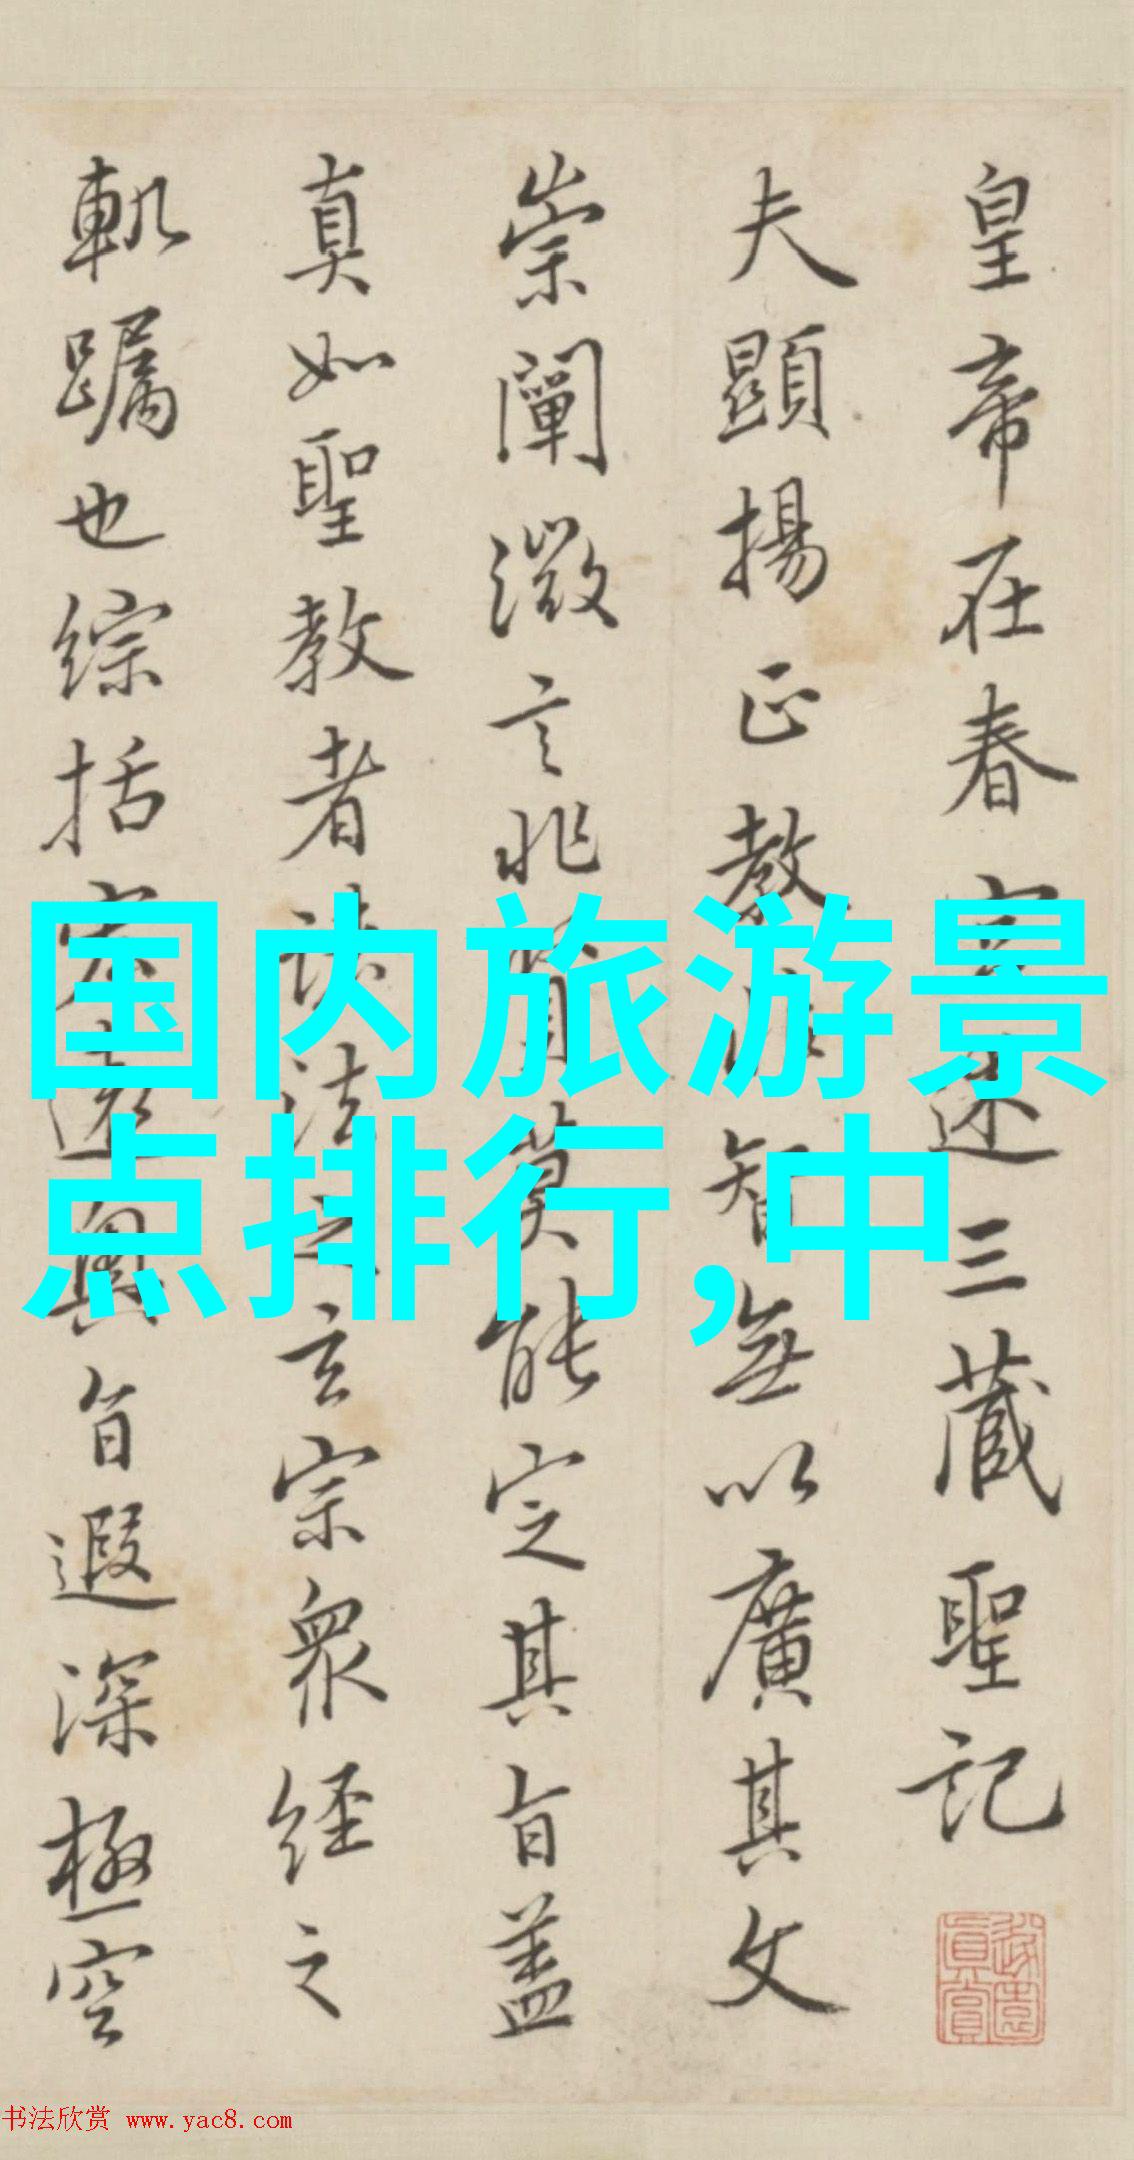 皇帝在春宫述三藏聖記
夫顯揚正教非智無以廣其文
崇闡微言非賢莫能定其旨盖
真如聖教者諸法之玄宗衆經之
軌躅也綜括宏遠奥旨遐深極空
国内旅游景
点排行,中
真賞
书法欣赏 www.yac8.com